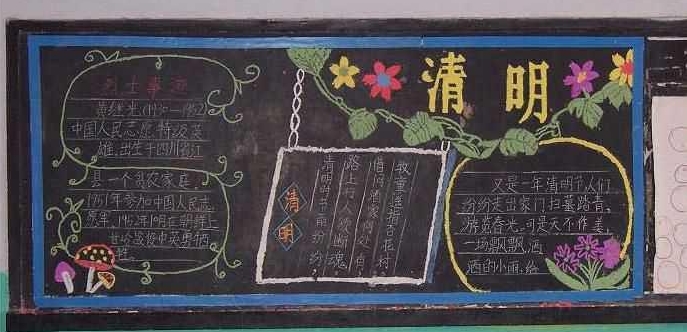 清明
烈士事迹
黄继光(1930—1952)
中国人民志愿 特级英
雄,出生于四川省中江
县一个贫农家庭,
1951年参加中国人民志
愿军,1952年10月在朝鲜上
甘岭战役中英勇牺
牲
清明
清明时节雨纷纷,
路上行人欲断魂
借问酒家何处有,
牧童遥指杏花村
又是一年清明节人们
纷纷走出家门扫墓踏青,
游览春光,可是天不作美,
一场飘飘洒
洒的小雨,给